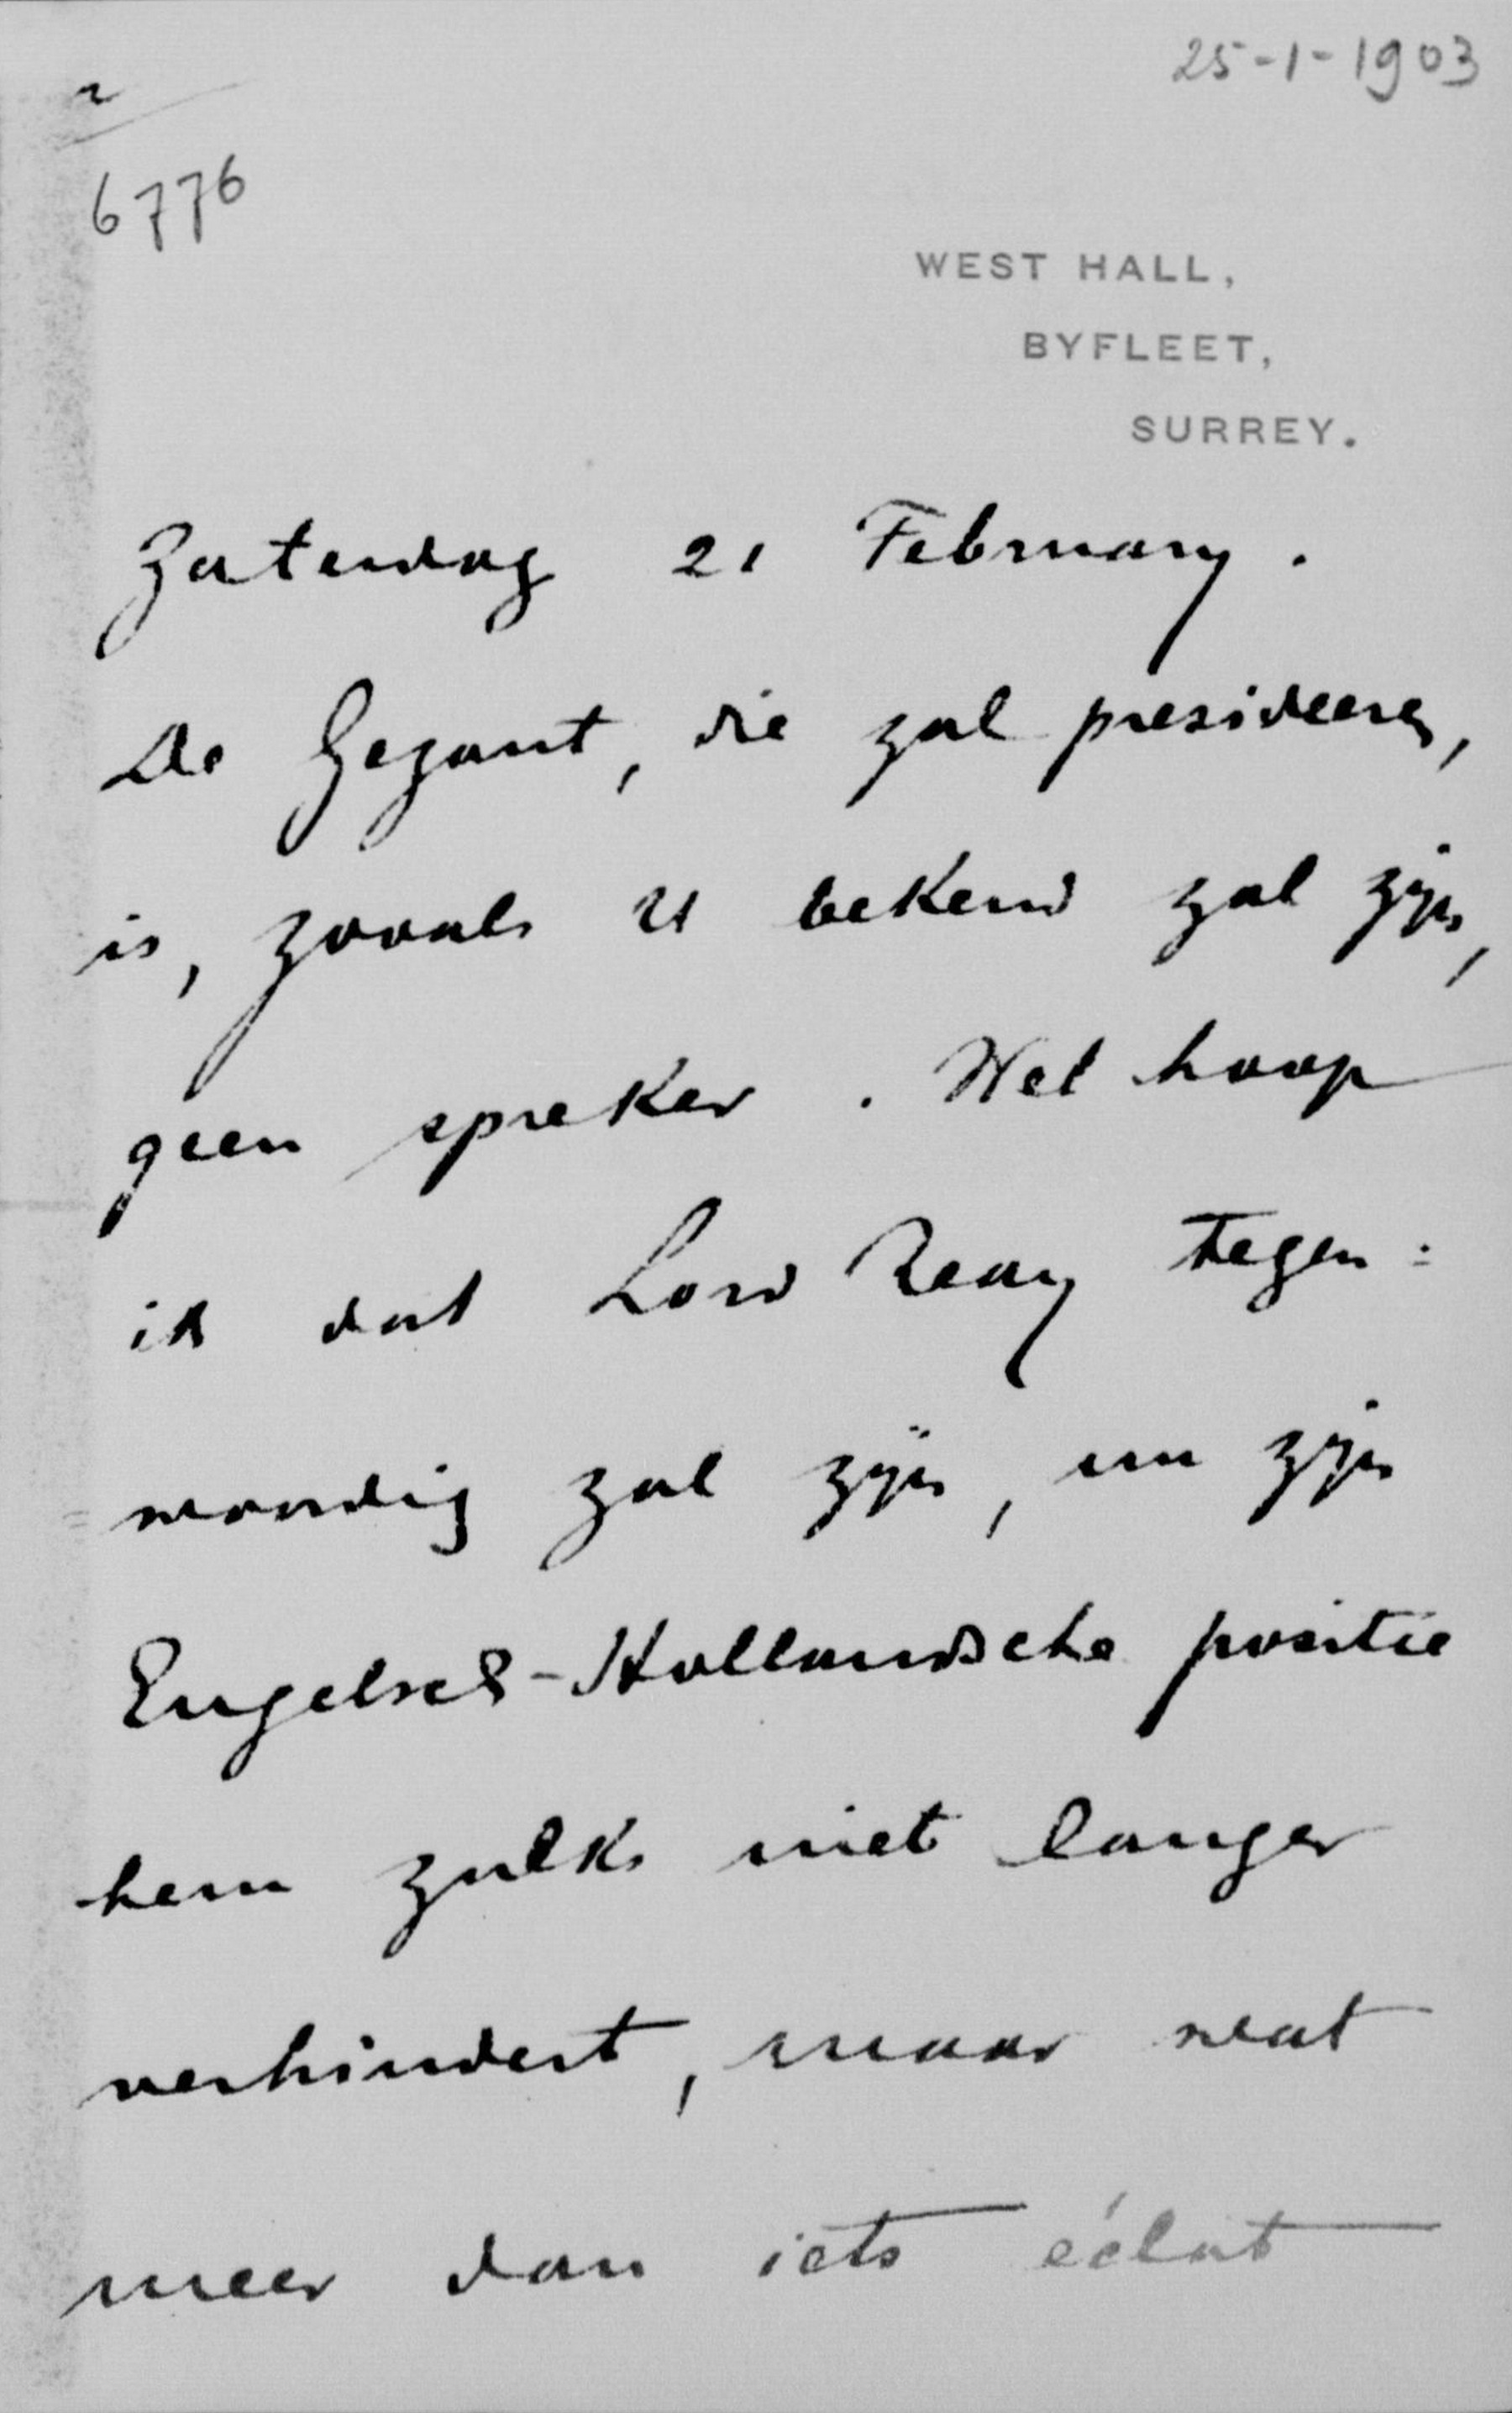 25-1-1903
2
6776
WEST HALL,
BYFLEET,
SURREY.
Zaterdag 21 February.
De Gezant, die zal presideeren,
is, zooals U bekend zal zijn,
geen spreker. Wel hoop
ik dat Lord Reay tegen=
woordig zal zijn, nu zijn
Engelsch-Hollandsche positie
hem zulks niet langer
verhindert, maar wat
meer dan iets éclat